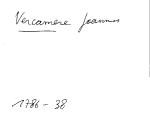 Vercamere Joannes
1786 - 38